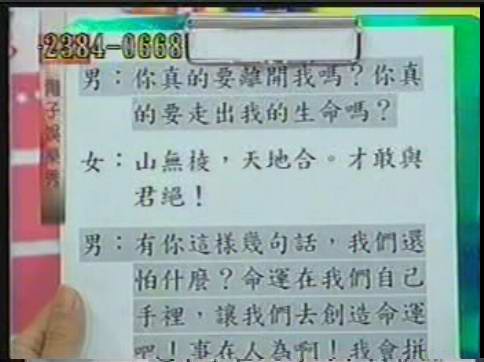 2384-0668
男：你真的要離開我嗎？你真
的要走出我的生命嗎？
女：山無稜，天地合。才敢與
君絕！
男：有你這樣幾句話，我們還
怕什麼？命運在我們自己
手裡，讓我們去創造命運
吧！事在人為啊！我會拚